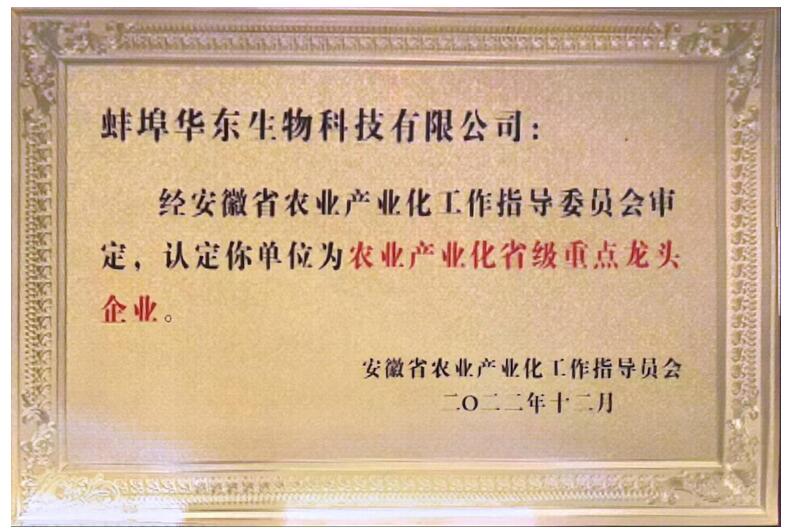 蚌埠华东生物科技有限公司：
经安徽省农业产业化工作指导委员会审
定，认定你单位为农业产业化省级重点龙头
企业。
安徽省农业产业化工作指导员会
二〇二二年十二月